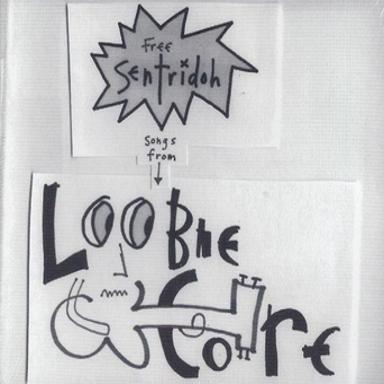 FREE
Sentridoh
Songs
from
LOOBIE
CORE